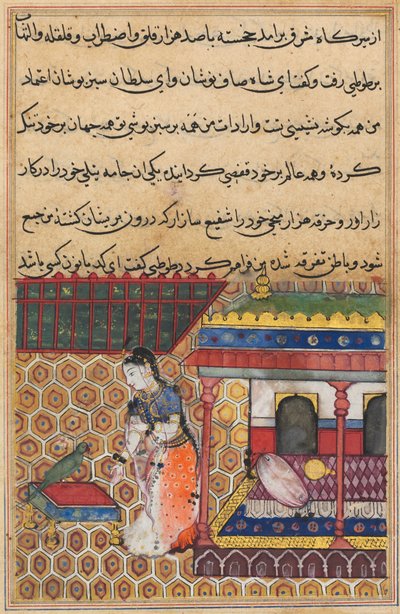 از سر گاه شرق برامد خجسته با صد هزار قلق و اضطراب و قلقله و التهاب
بر طوطی رفت و گفت ای شاه صاف نوشان و ای سلطان سبز پوشان اعتماد
من همه بگوشه نشینی تست و ارادات من همه بر سبز پوشی تو همه جهان بر خود تنک
کرده و همه عالم بر خود قفصی کردانیده یکی از جامه نیلی خود را در کار
زار اور و خرقه هزار میخی خود را شفیع ساز که درون پریشان کشته من جمع
شود و باطن تفرقه شده من فراهم کردد طوطی گفت ای کدبانو کسی باشد